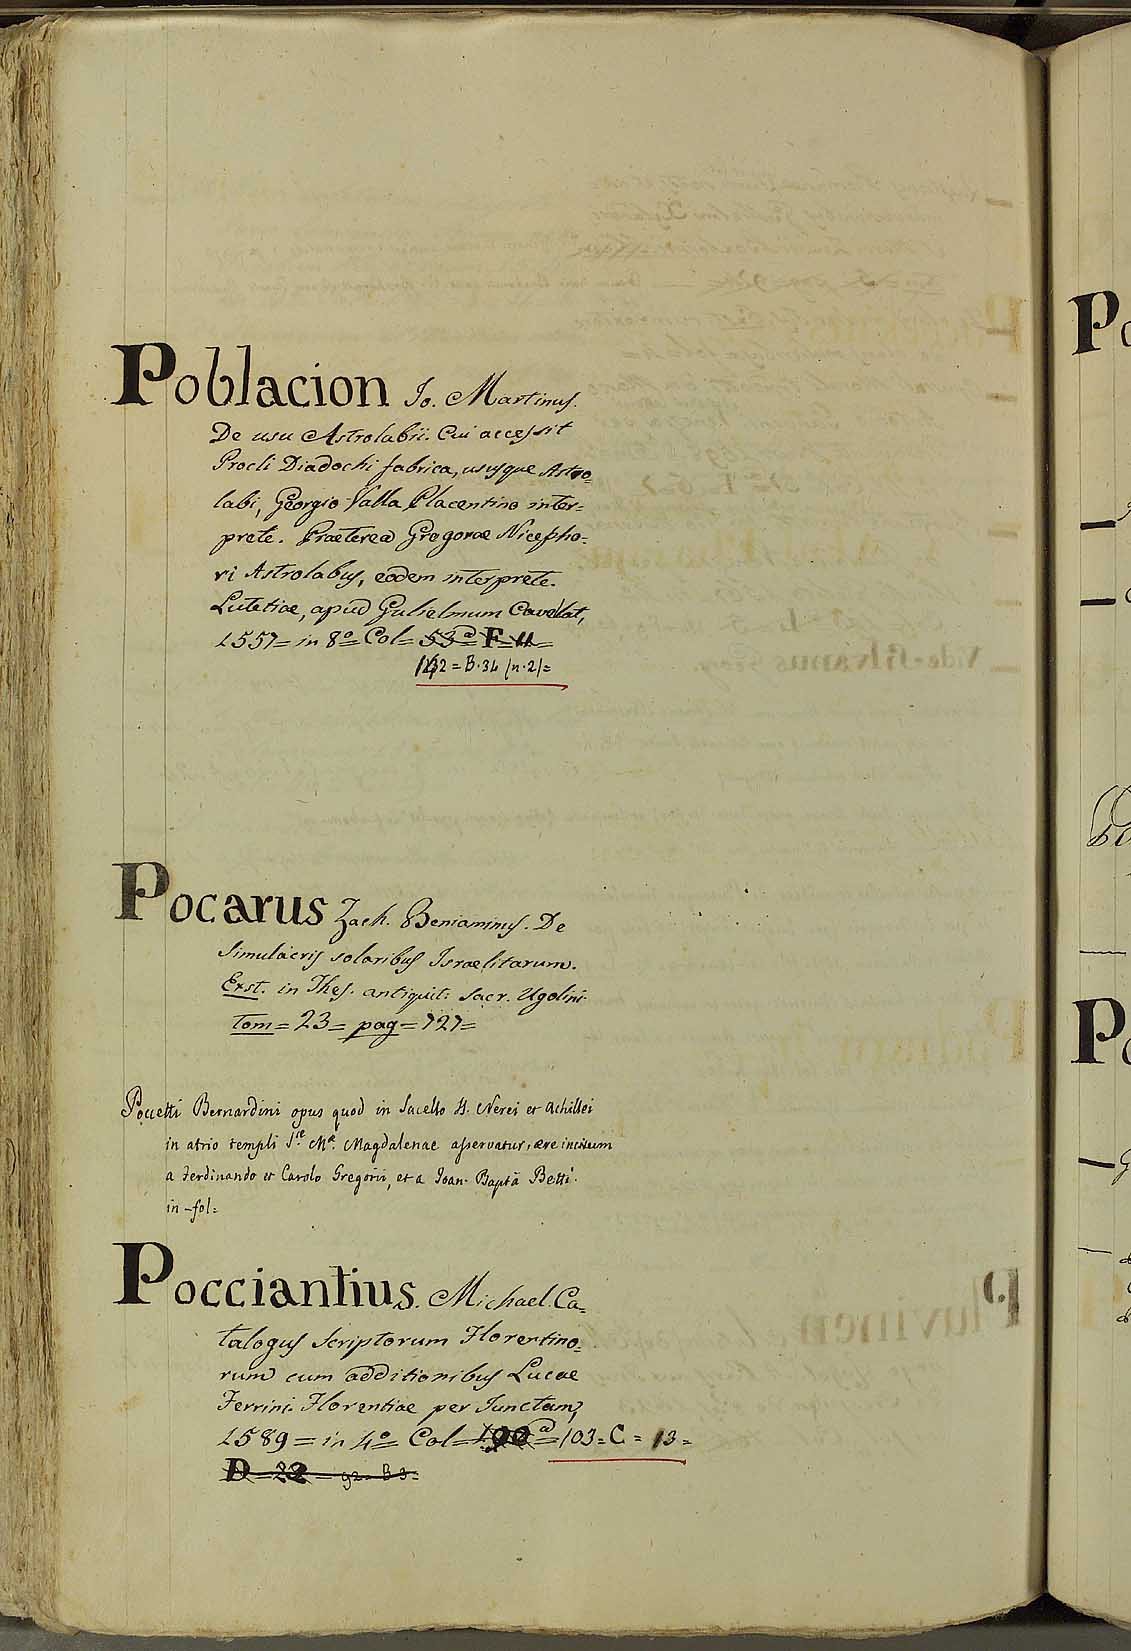 Poblacion Jo. Martinus.
De usu Astrolabii. Cui accessit
Procli Diadochi fabrica, ususque Astro=
labi, Georgio Valla Placentino inter=
prete. Praeterea Gregorae Nicepho=
ri Astrolabus, eodem interprete.
Lutetiae, apud Gulielmum Cavelat,
1557= in 8.º= Col= 53ª= F= 11=
142= B. 34 (n. 2)=
Pocarus Zach. Beniaminus. De
Simulacris solaribus Israelitarum.
Exst. in Thes. antiquit: sacr. Ugolini
Tom= 23= pag= 727=
Poccetti Bernardini opus quod in Sacello SS. Nerei et Achillei
in atrio templi Sce. Mæ. Magdalenae asservatur, ære incisum
a Ferdinando et Carolo Gregorii, et a Joan. Baptâ Betti.
in fol=
Pocciantius. Michael. Ca=
talogus Scriptorum Florentino=
rum cum additionibus Lucae
Ferrini. Florentiae per Junctam,
1589= in 4º= Col= ª= 103= C= 13=
D= 22= 92= B 3=
Po
Po